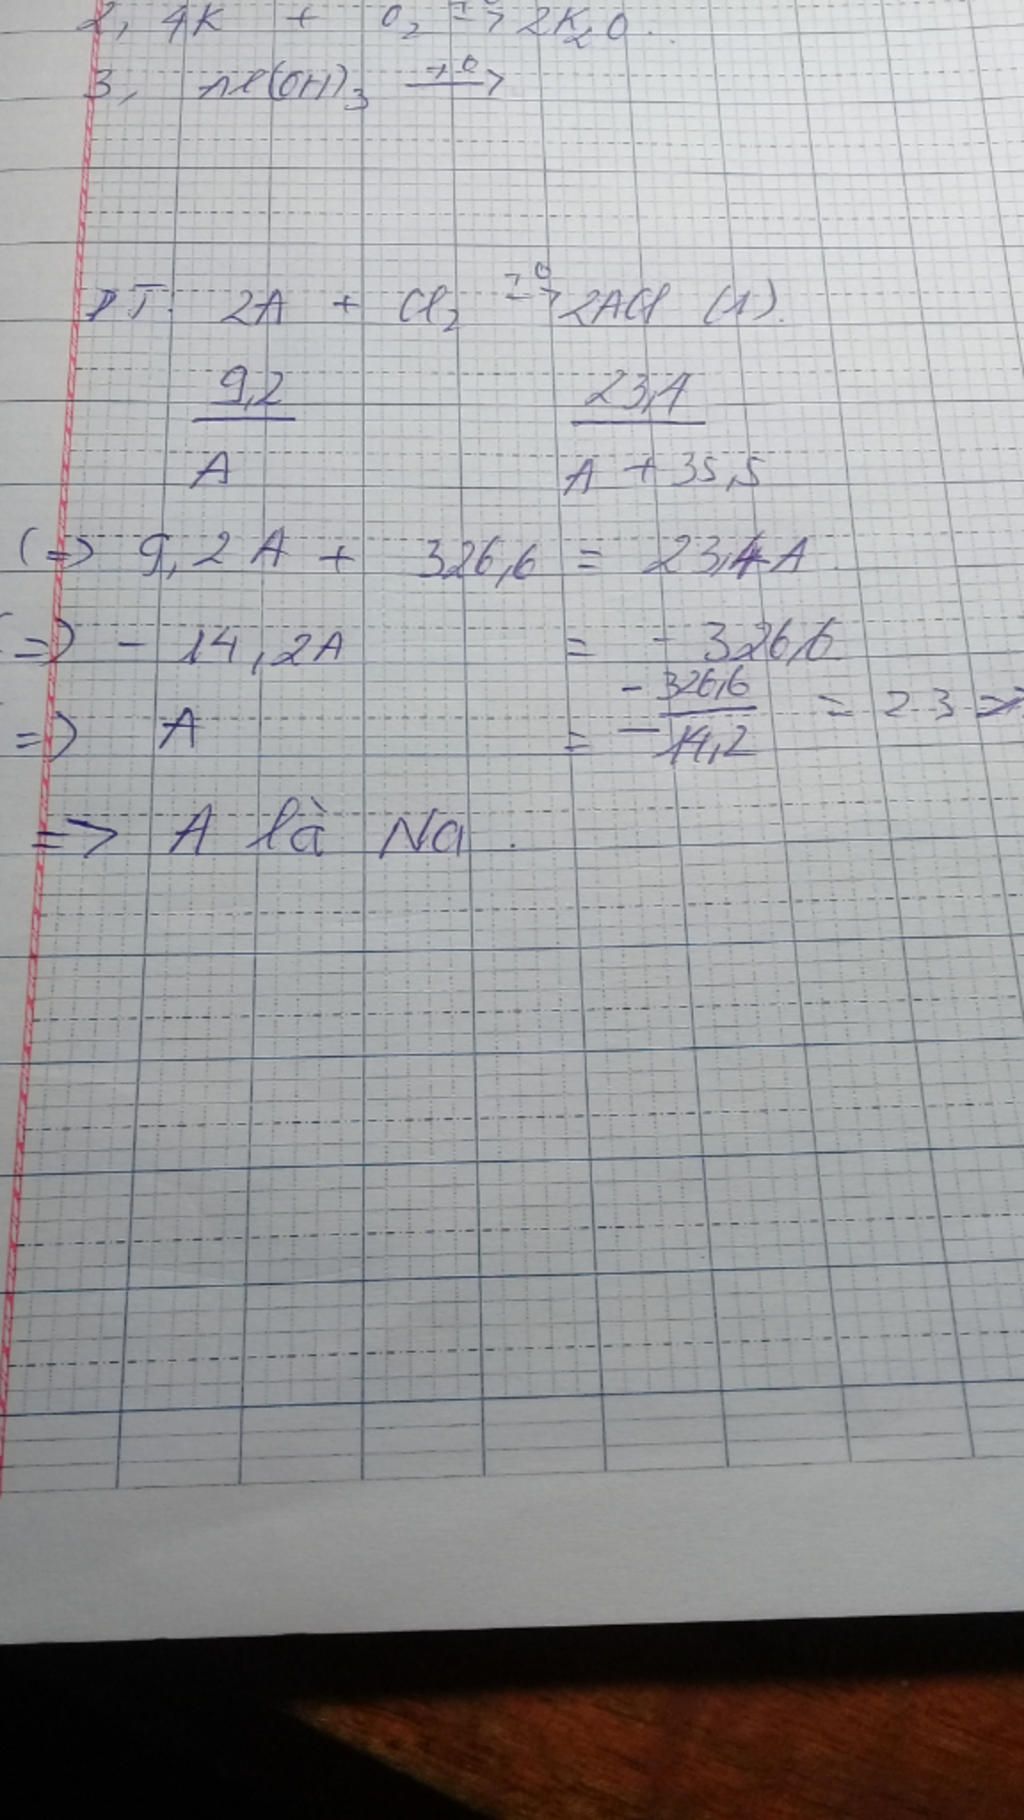 2, 4K + O₂ t⁰→ 2K₂O.
3, Al(OH)₃ t⁰→
PT: 2A + Cl₂ t⁰→ 2ACl (1).
9,2 23,4
A A + 35,5
(=> 9,2A + 326,6 = 23,4A
(=) - 14,2A = - 326,6
=) A = -326,6 / -14,2 = 23 =>
=> A là Na.